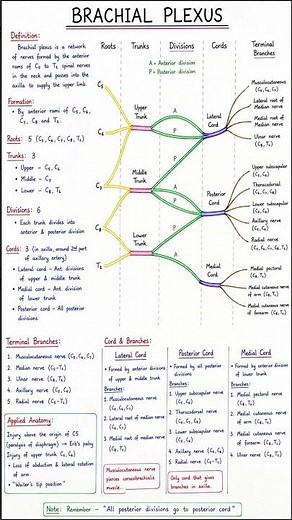 BRACHIAL PLEXUS
Definition:
Brachial plexus is a network
of nerves formed by the anterior
rami of C5 to T1 spinal nerves
in the neck and passes into the
axilla to supply the upper limb.
Formation:
• By anterior rami of C5, C6,
C7, C8 and T1.
Roots: 5 (C5, C6, C7, C8, T1)
Trunks: 3
• Upper - C5, C6
• Middle - C7
• Lower - C8, T1
Divisions: 6
• Each trunk divides into
anterior & posterior division
Cords: 3 (in axilla, around 2nd part
of axillary artery)
• Lateral cord - Ant. divisions
of upper & middle trunk
• Medial cord - Ant. division
of lower trunk
• Posterior cord - All posterior
divisions
Roots
Trunks
Divisions
Cords
Terminal
Branches
A = Anterior division
P = Posterior division
C5
C6
C7
C8
T1
Upper
Trunk
Middle
Trunk
Lower
Trunk
A
P
A
P
P
A
Lateral
Cord
Posterior
Cord
Medial
Cord
Musculocutaneous
Lateral root of
Median nerve
Medial root of
Median nerve
Ulnar nerve
Upper subscapular
Thoracodorsal
Lower subscapular
Axillary nerve
Radial nerve
Medial pectoral
Medial cutaneous
nerve of arm
Medial cutaneous
nerve of forearm
Terminal Branches:
1. Musculocutaneous nerve (C5, C6, C7)
2. Median nerve (C5-T1)
3. Ulnar nerve (C8, T1)
4. Axillary nerve (C5, C6)
5. Radial nerve (C5-T1)
Applied Anatomy:
Injury above the origin of C5
(paralysis of diaphragm) → Erb's palsy
Injury of upper trunk C5, C6)
• Loss of abduction & lateral rotation
of arm.
• "Waiter's tip position"
Cord & Branches:
Lateral Cord
• Formed by anterior divisions
of upper & middle trunk
Branches:
1. Musculocutaneous nerve
(C5, C6, C7)
2. Lateral root of median nerve
3. Medial root of median nerve
Musculocutaneous nerve
pierces coracobrachialis
muscle.
Posterior Cord
• Formed by all posterior
divisions
Branches:
1. Upper subscapular nerve
2. Thoracodorsal nerve
3. Lower subscapular nerve
4. Axillary nerve (C5, C6)
5. Radial nerve (C5-T1)
Only cord that gives
branches in axilla.
Medial Cord
• Formed by anterior division
of lower trunk
Branches:
1. Medial pectoral nerve
2. Medial cutaneous nerve
of arm
3. Medial cutaneous nerve
of forearm
4. Ulnar nerve
Note: Remember - "All posterior divisions go to posterior cord"